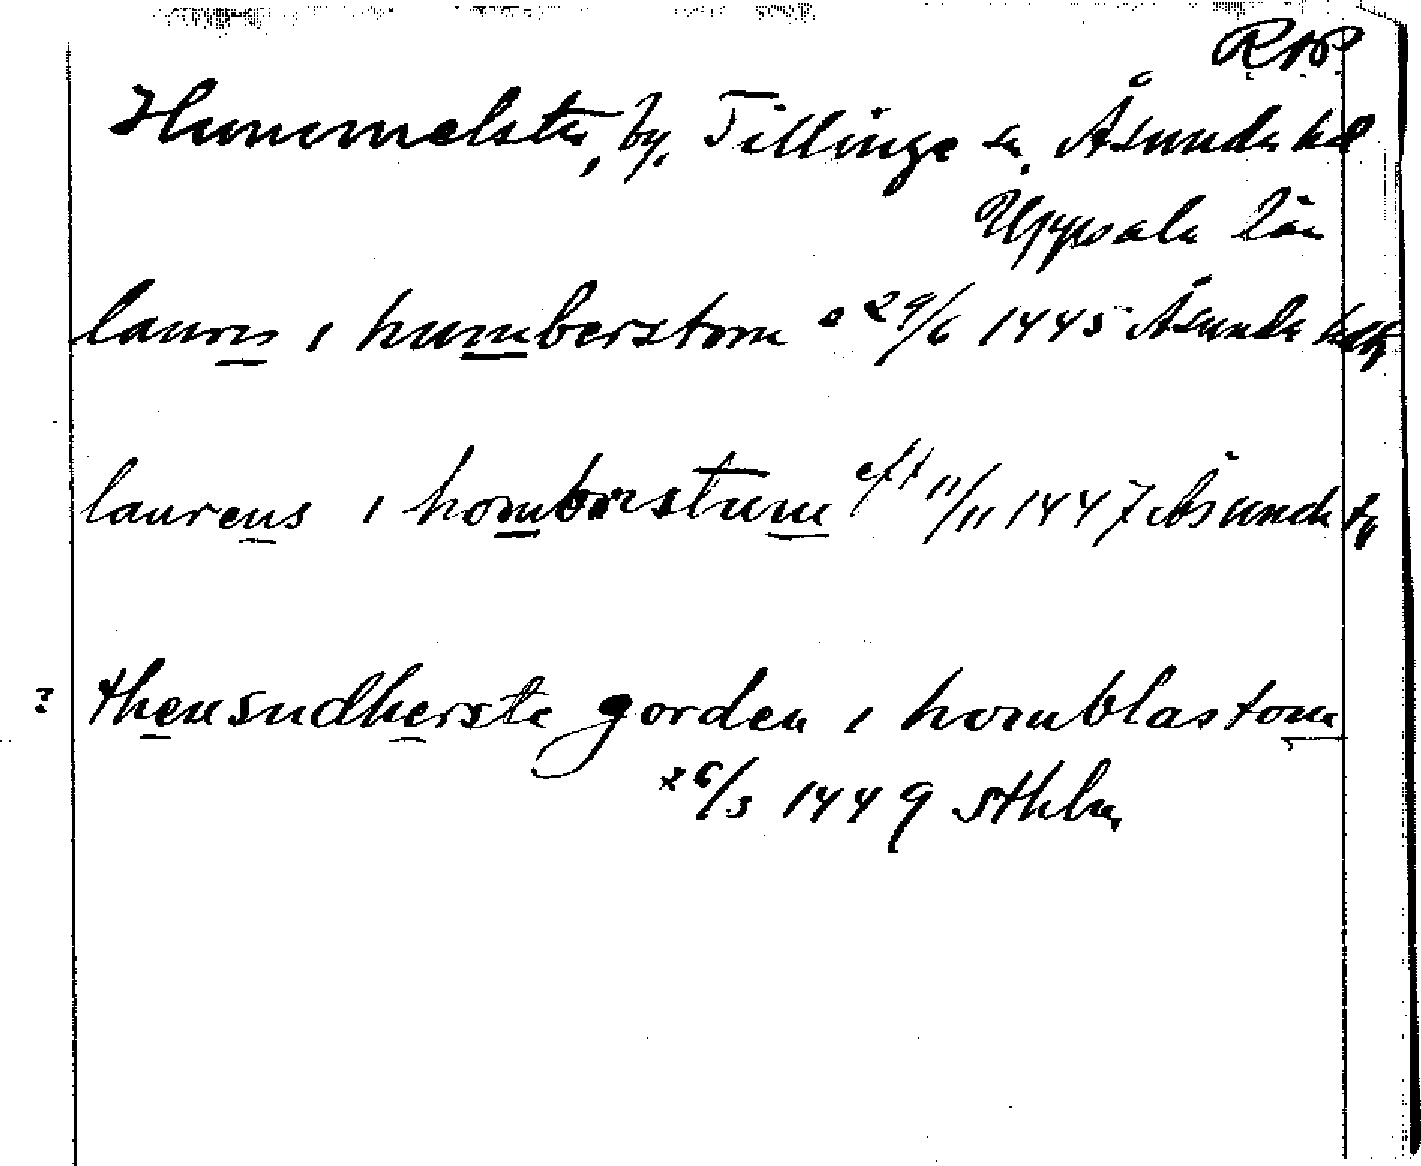 RAP
Hummelsta, by, Tillinge sn, Åsunda hd
Uppsala län
laurens i humberstom e 29/6 1445 Åsunda hdtg
laurens i homborstum eft 11/11 1447 Åsunda tg
? then sudherste gorden i hornblastom
26/3 1449 Sthlm